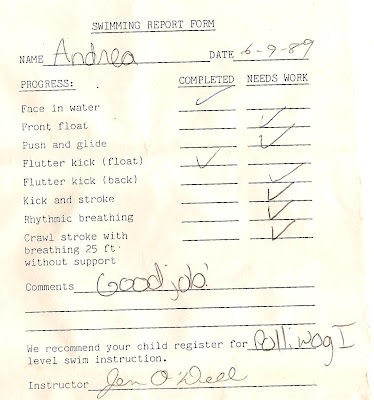 SWIMMING REPORT FORM
NAME Andrea DATE 6-9-89
PROGRESS: COMPLETED NEEDS WORK
Face in water ✓
Front float ✓
Push and glide ✓
Flutter kick (float) ✓
Flutter kick (back) ✓
Kick and stroke ✓
Rhythmic breathing ✓
Crawl stroke with ✓
breathing 25 ft.
without support
Comments Good job!
We recommend your child register for Polliwog I
level swim instruction.
Instructor Jen O'Dell